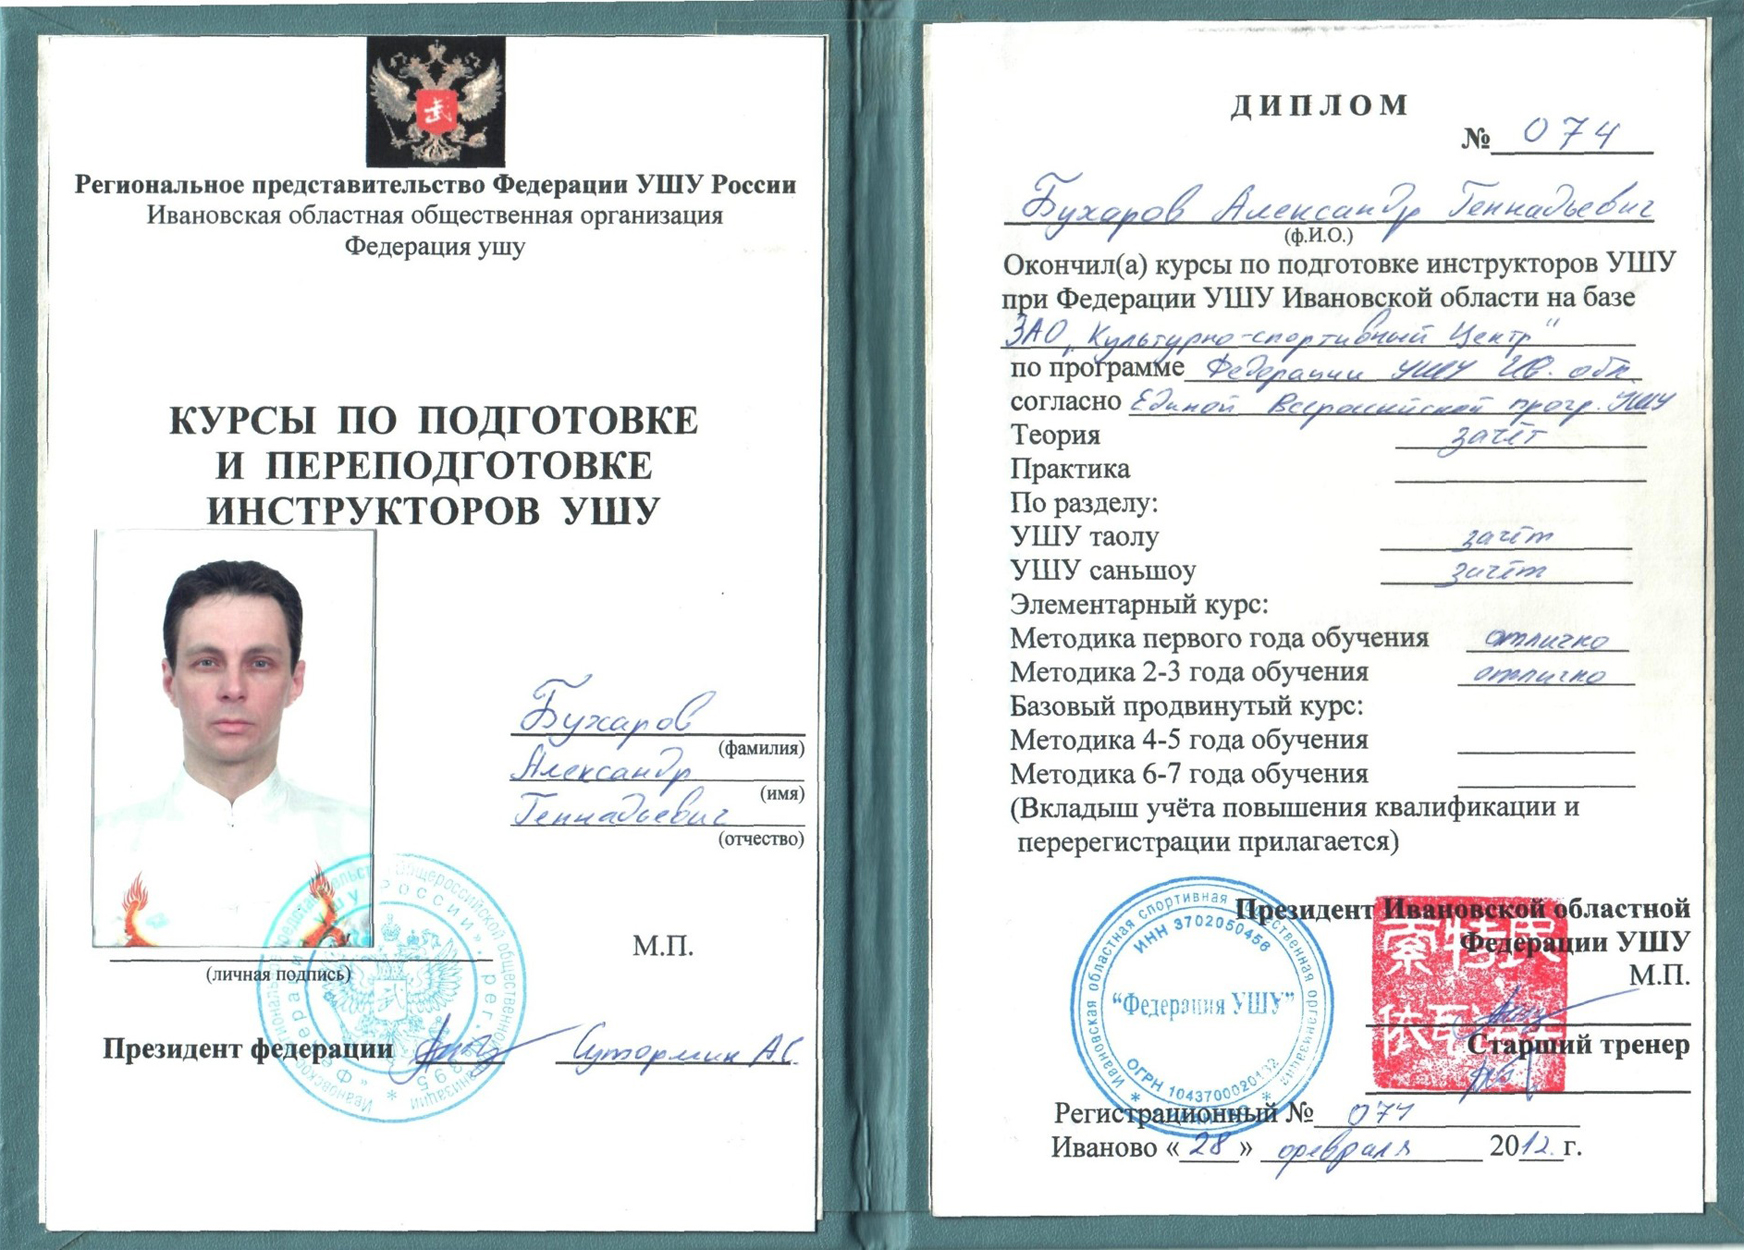 武
Региональное представительство Федерации УШУ России
Ивановская областная общественная организация
Федерация ушу
КУРСЫ ПО ПОДГОТОВКЕ
И ПЕРЕПОДГОТОВКЕ
ИНСТРУКТОРОВ УШУ
Бухаров
(фамилия)
Александр
(имя)
Геннадьевич
(отчество)
М.П.
(личная подпись)
Президент федерации
Сутормин А.С.
ДИПЛОМ
№ 074
Бухаров Александр Геннадьевич
(ф.И.О.)
Окончил(а) курсы по подготовке инструкторов УШУ
при Федерации УШУ Ивановской области на базе
ЗАО „Культурно-спортивный Центр"
по программе Федерации УШУ Ив. обл.
согласно Единой Всероссийской прогр. УШУ
Теория зачёт
Практика
По разделу:
УШУ таолу зачёт
УШУ саньшоу зачёт
Элементарный курс:
Методика первого года обучения отлично
Методика 2-3 года обучения отлично
Базовый продвинутый курс:
Методика 4-5 года обучения
Методика 6-7 года обучения
(Вкладыш учёта повышения квалификации и
перерегистрации прилагается)
Президент Ивановской областной
Федерации УШУ
М.П.
Старший тренер
Ивановская областная спортивная общественная организация
ИНН 3702050456
"Федерация УШУ"
ОГРН 1043700020132
Регистрационный № 074
Иваново «28» февраля 2012. г.